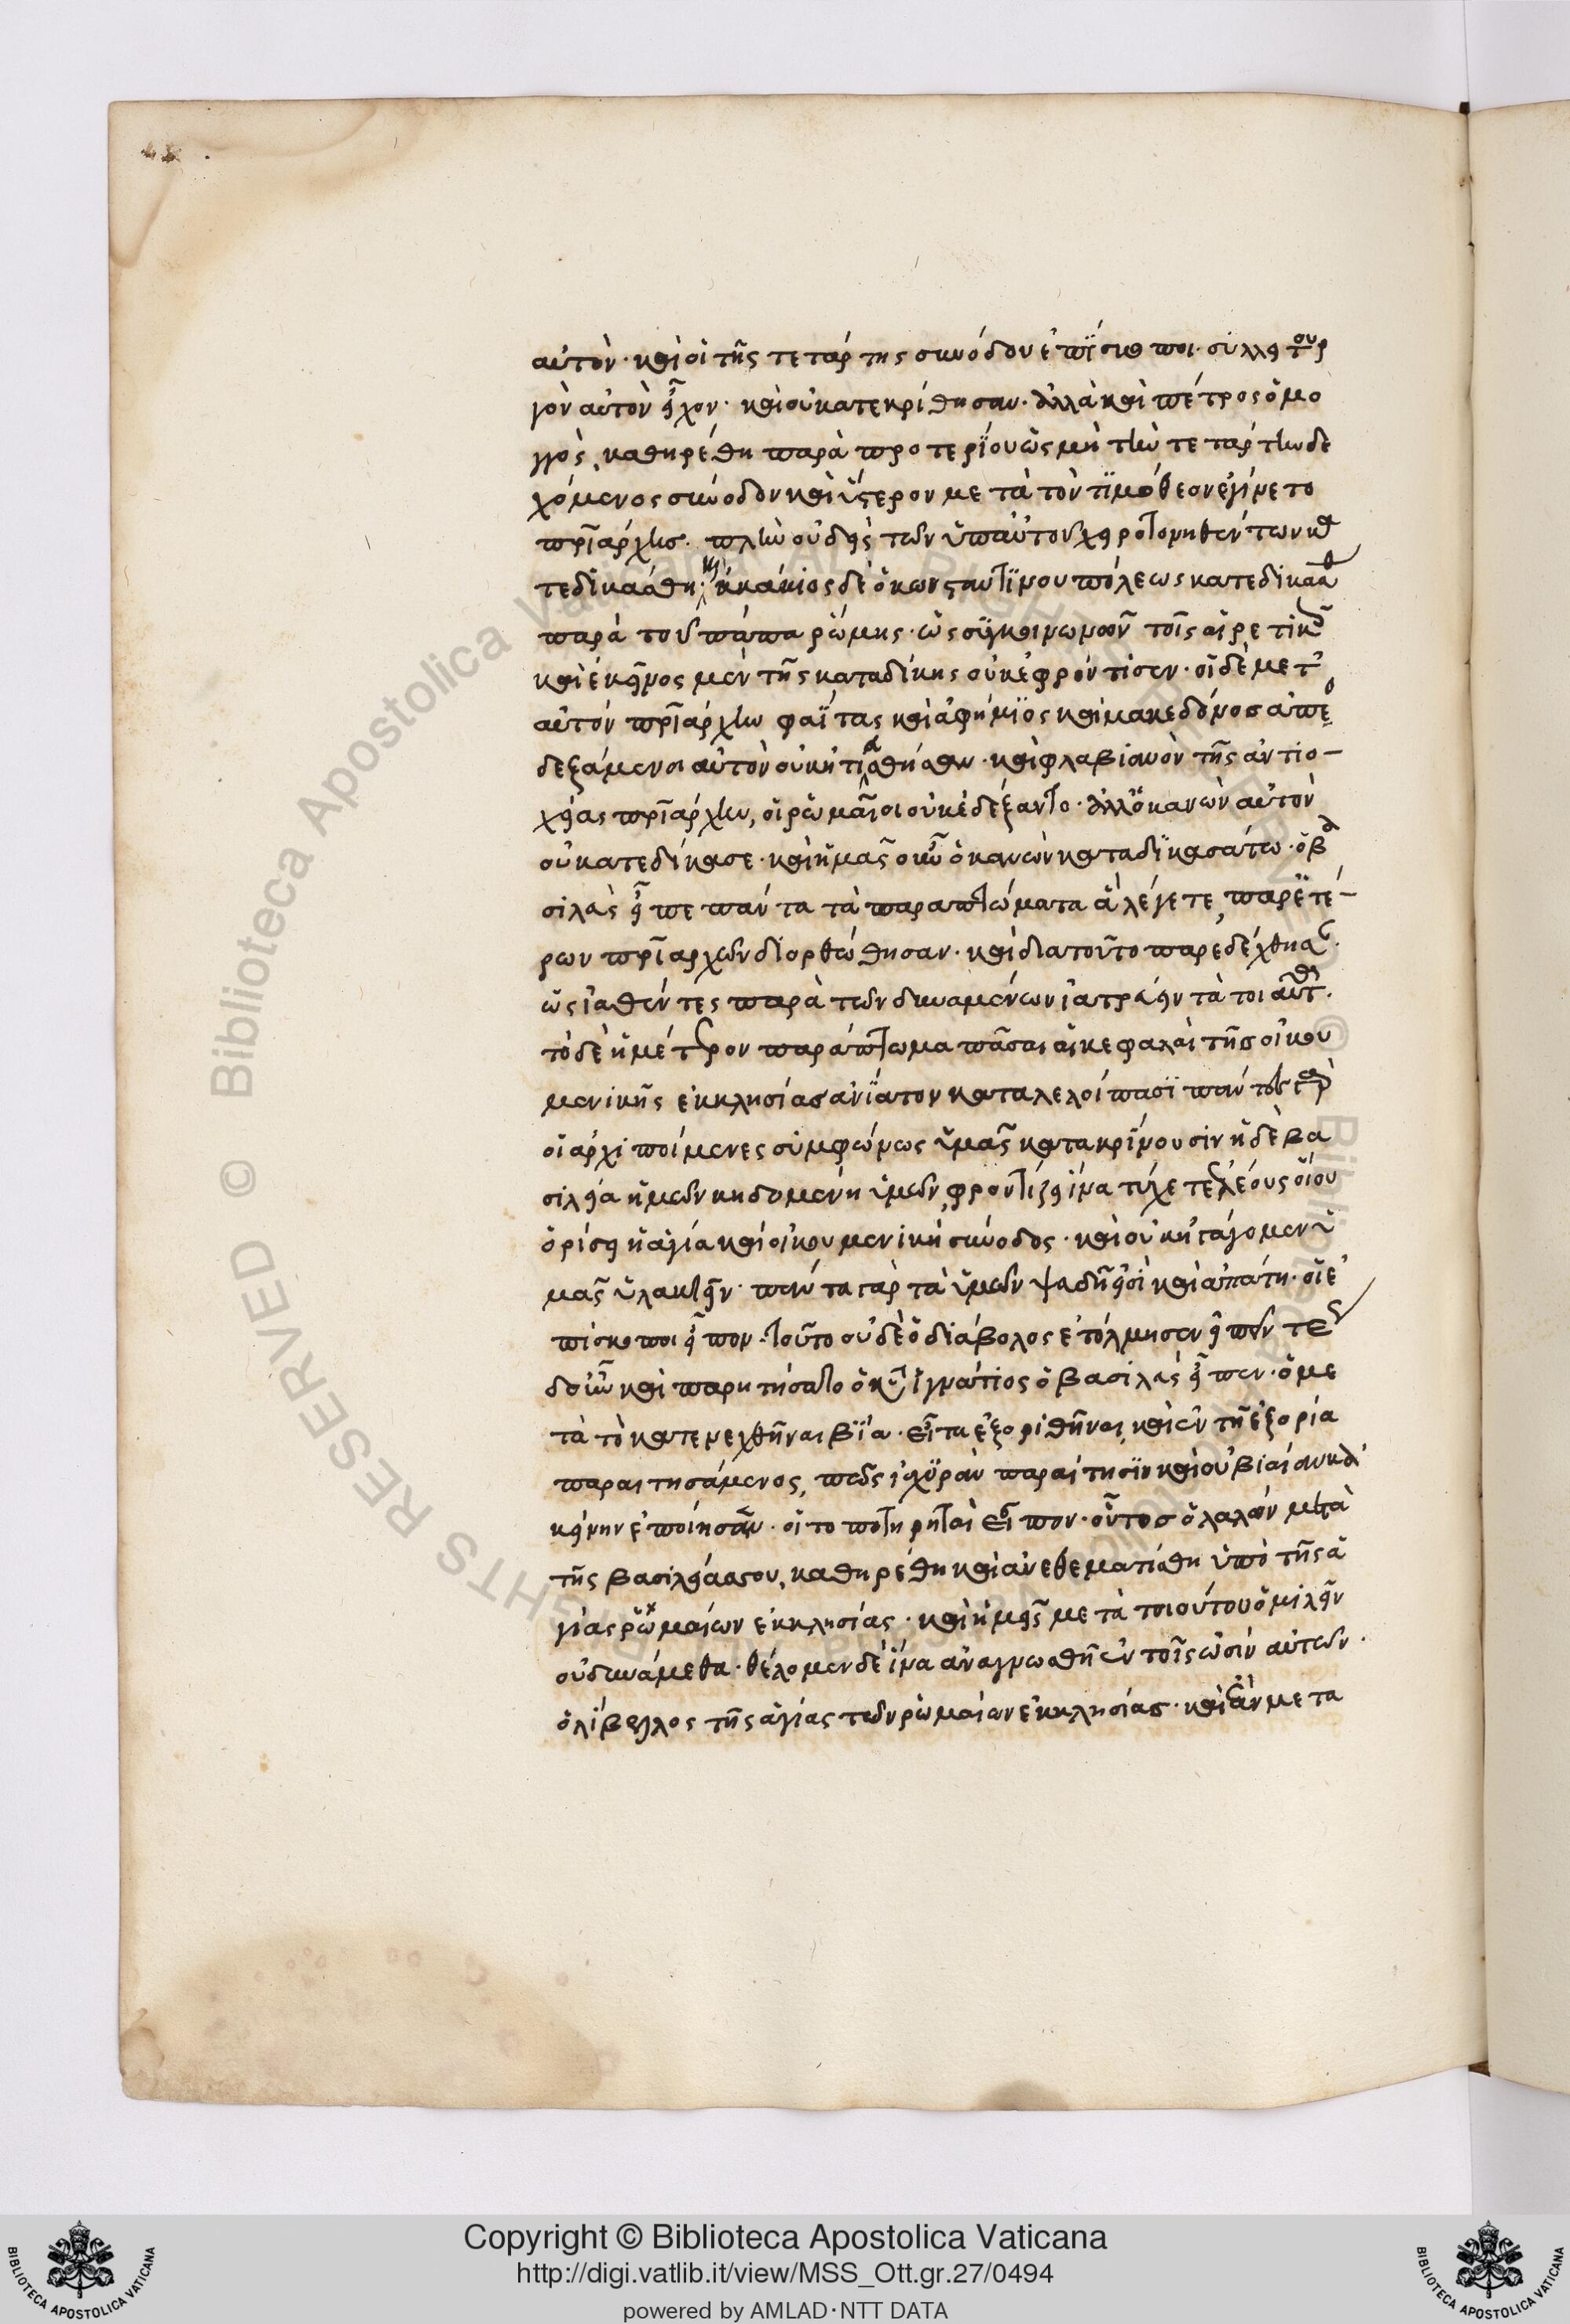 αὐτὸν· καὶ οἱ τῆς τετάρτης συνόδου ἐπΐσκοποι· συλλειτουρ
γὸν αὐτὸν εἶχον· καὶ οὐ κατεκρίθησαν· ἀλλὰ καὶ πέτρος ὁ μο
γγὸς, καθηρέθη παρὰ προτερΐου ὡς μὴ τὴν τετάρτην δε
χόμενος σύνοδον καὶ ὕστερον μετὰ τὸν τϊμόθεον ἐγίνετο
πριάρχης. πλὴν οὐδεὶς τῶν ὑπ αὐτοῦ χειροτονηθέντων κα
τεδικάσθη· καὶ ἀκάκιος δὲ ὁ κωνσταντϊνουπόλεως κατεδικάσθ
παρὰ τοῦ πάπα ῥώμης· ὡς συγκοινωνῶν τοῖς αἱρετικοῖς
καὶ ἐκεῖνος μὲν τῆς καταδίκης οὐκ ἐφρόντισεν· οἱ δὲ μετ
αὐτὸν πριάρχαι φαΐτας καὶ εὐφήμϊος καὶ μακεδόνιος ἀπο
δεξάμενοι αὐτὸν οὐκ ᾐτιάθησαν· καὶ φλαβϊανὸν τῆς ἀντιο
χείας πριάρχην, οἱ ῥωμαῖοι οὐκ ἐδέξαντο· ἀλλ ὁ κανὼν αὐτὸν
οὐ κατεδίκασε· καὶ ἡμᾶς οὖν ὁ κανὼν καταδϊκασάτω· ὁ βα
σιλεὺς εἶπε πάντα τὰ παραπτώματα ἃ λέγετε, παρ ἑτέ
ρων πριαρχῶν διορθώθησαν· καὶ διὰ τοῦτο παρεδέχθησαν
ὡς ἰαθέντες παρὰ τῶν δυναμένων ἰατρεύειν τὰ τοιαῦτα.
τὸ δὲ ἡμέτερον παράπτωμα πᾶσαι αἱ κεφαλαὶ τῆς οἰκου
μενικῆς ἐκκλησίας ἀνΐατον καταλελοίπασϊ πάντες γὰρ
οἱ ἀρχιποίμενες συμφώνως ὑμᾶς κατακρίνουσιν ἡ δὲ βα
σιλεία ἡμῶν κηδομένη ὑμῶν, φροντίζει ἵνα τύχετε ἐλέους οἵου
ὁρίσει ἡ ἁγία καὶ οἰκουμενικὴ σύνοδος· καὶ οὐκ ἐάσομεν ὑ
μᾶς ὑλακτεῖν· πάντα γὰρ τὰ ὑμῶν ψευδῆ εἰσὶ καὶ ἀπάτη· οἱ ἐ
πίσκοποι εἶπον· τοῦτο οὐδὲ ὁ διάβολος ἐτόλμησεν εἰπεῖν
καὶ παρητήσατο ὁ κῦρ ἰγνάτιος ὁ βασιλεὺς εἶπεν· ὁ με
τὰ τὸ κατενεχθῆναι βΐα· εἶτα ἐξορισθῆναι, καὶ ἐν τῇ ἐξορία
παραιτησάμενος, πῶς ἰσχυρὰν παραίτησϊν καὶ οὐ βιαίαν καὶ
ἐποίησεν· οἱ τοποτηρηταὶ εἶπον· οὗτος ὁ λαλῶν μετὰ
τῆς βασιλείας σου, καθηρέθη καὶ ἀνεθεματίσθη ὑπὸ τῆς ἁ
γίας ῥωμαίων ἐκκλησίας· καὶ ἡμεῖς μετὰ τοιούτου ὁμιλεῖν
οὐ δυνάμεθα· θέλομεν δὲ ἵνα ἀναγνωσθῆ ἐν τοῖς ὠσὶν αὐτῶν·
ὁ λίβελλος τῆς ἁγίας τῶν ῥωμαίων ἐκκλησίας· καὶ ἐὰν μετα
Copyright © Biblioteca Apostolica Vaticana
http://digi.vatlib.it/view/MSS_Ott.gr.27/0494
powered by AMLAD·NTT DATA